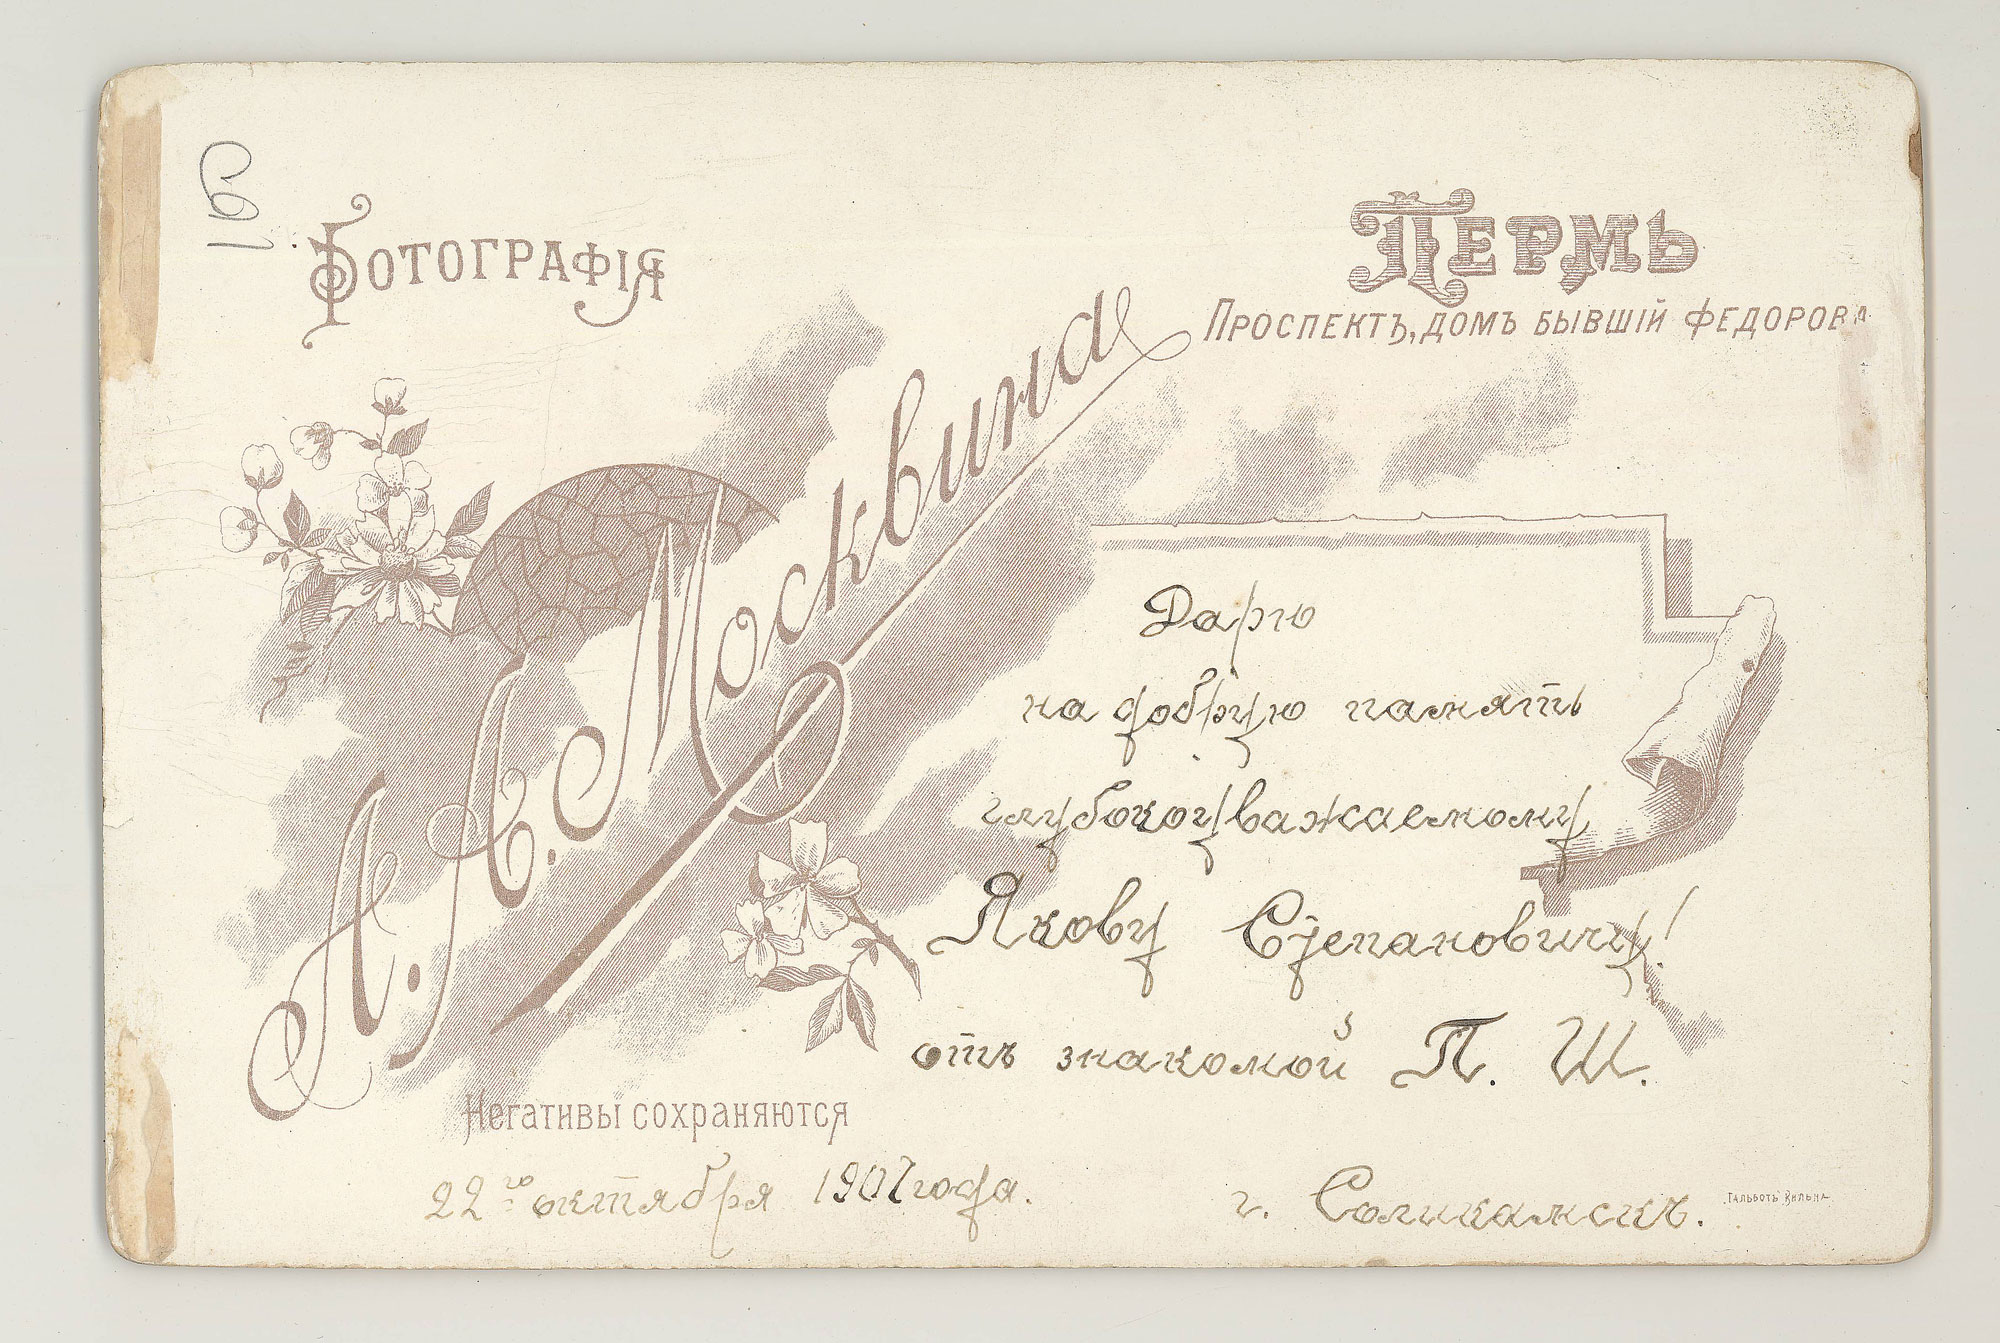 Фотографія
Пермь
Проспектъ, домъ бывшій Федорова
А. А. Москвина
Дарю
на добрую память
глубокоуважаемому
Якову Степановичу!
отъ знакомой П. Ш.
Негативы сохраняются
22го октября 1907 года.
г. Соликамскъ.
Гальботъ Вильна